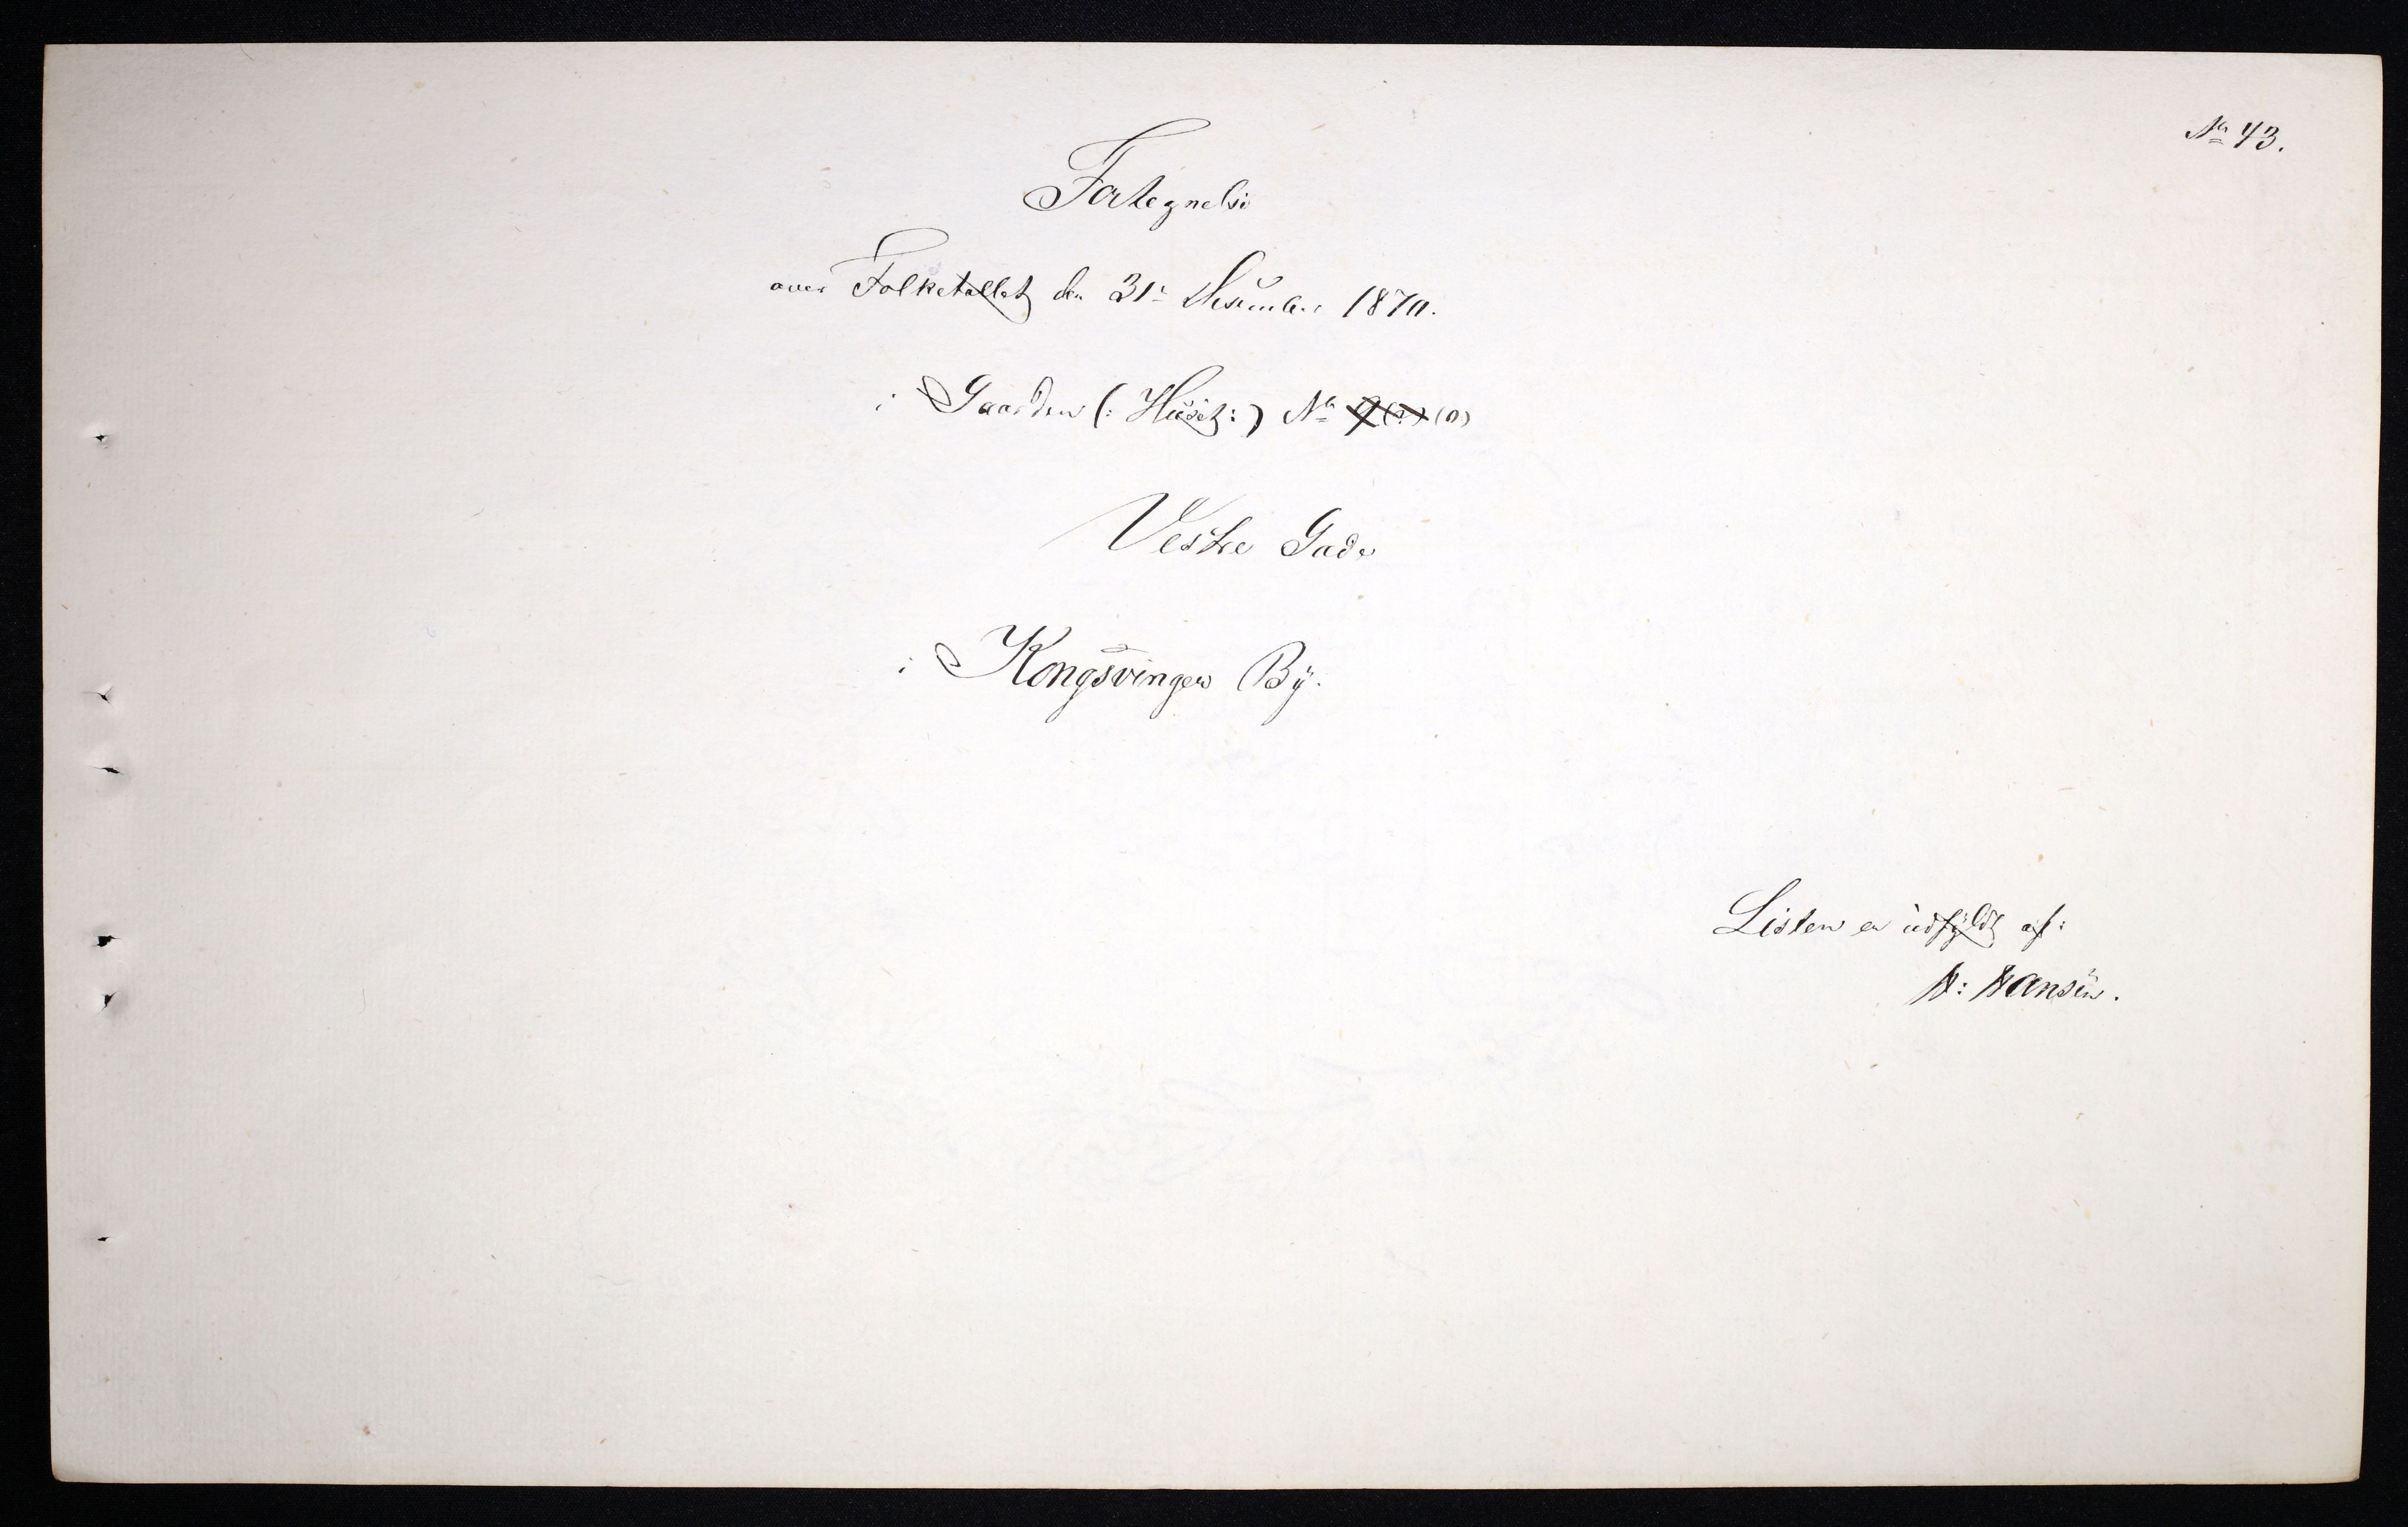 No 43.
Fortegnelse
over Folketallet den 31te December 1870.
i Gaarden (: Huset :) No (0)
Vestre Gade
i Kongsvinger By.
Listen er udfyldt af:
H: Hansen.